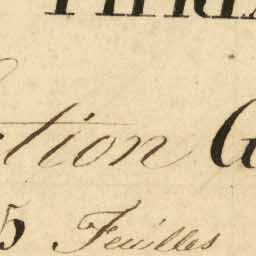 ction G
5 Feuilles